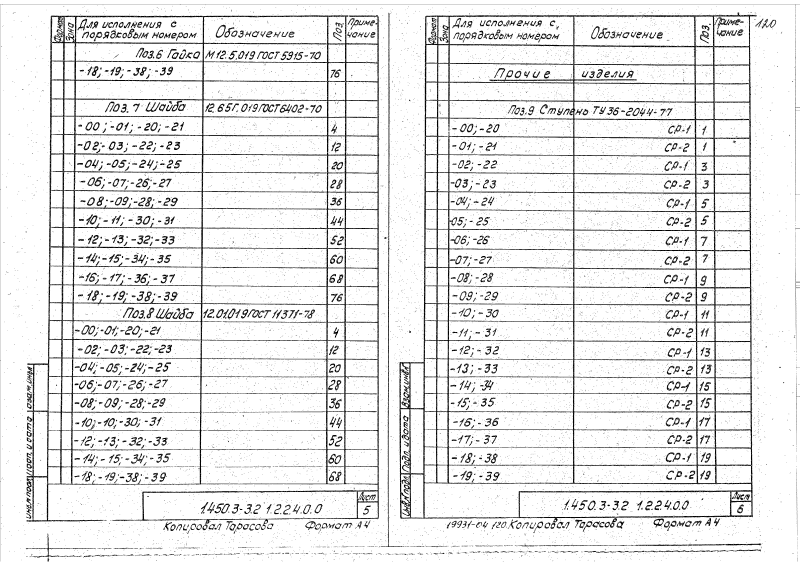 120
Формат Зона Для исполнения с порядковым номером Обозначение Поз. Приме-чание
Поз.6 Гайка М12.5.019 ГОСТ 5915-70
-18; -19; -38; -39 76
Поз. 7 Шайба 12.65Г.019 ГОСТ 6402-70
-00; -01; -20; -21 4
-02; -03; -22; -23 12
-04; -05; -24; -25 20
-06; -07; -26; -27 28
-08; -09; -28; -29 36
-10; -11; -30; -31 44
-12; -13; -32; -33 52
-14; -15; -34; -35 60
-16; -17; -36; -37 68
-18; -19; -38; -39 76
Поз.8 Шайба 12.01.019 ГОСТ 11371-78
-00; -01; -20; -21 4
-02; -03; -22; -23 12
-04; -05; -24; -25 20
-06; -07; -26; -27 28
-08; -09; -28; -29 36
-10; -10; -30; -31 44
-12; -13; -32; -33 52
-14; -15; -34; -35 60
-18; -19; -38; -39 68
1.450.3-3.2 1.2.2.4.0.0 Лист 5
Копировал Тарасова Формат А4
Формат Зона Для исполнения с порядковым номером Обозначение Поз. Приме-чание
Прочие изделия
Поз.9 Ступень ТУ 36-2044-77
-00; -20 СР-1 1
-01; -21 СР-2 1
-02; -22 СР-1 3
-03; -23 СР-2 3
-04; -24 СР-1 5
-05; -25 СР-2 5
-06; -26 СР-1 7
-07; -27 СР-2 7
-08; -28 СР-1 9
-09; -29 СР-2 9
-10; -30 СР-1 11
-11; -31 СР-2 11
-12; -32 СР-1 13
-13; -33 СР-2 13
-14; -34 СР-1 15
-15; -35 СР-2 15
-16; -36 СР-1 17
-17; -37 СР-2 17
-18; -38 СР-1 19
-19; -39 СР-2 19
Инв.№ подл. Подп. и дата Взам.инв.№
1.450.3-3.2 1.2.2.4.0.0 Лист 6
19931-04 120 Копировал Тарасова Формат А4